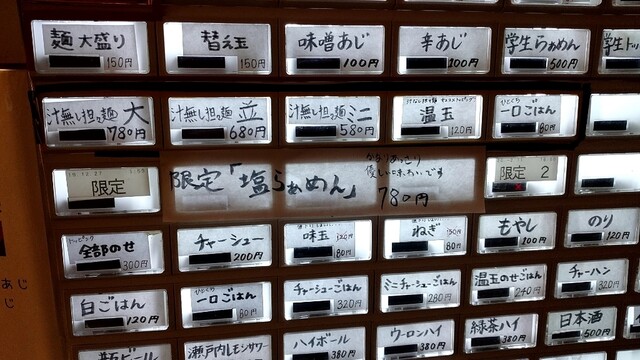 麺大盛り 150円
替え玉 150円
味噌あじ 100円
辛あじ 100円
学生らぁめん 500円
汁無し担々麺 大 780円
汁無し担々麺 並 680円
汁無し担々麺 ミニ 580円
温玉 120円
一口ごはん 80円
限定
限定「塩らぁめん」 780円
優しい味わいです
限定 2
トッピング
全部のせ 300円
チャーシュー 200円
味玉 120円 80円
ねぎ 80円
もやし 100円
のり 120円
白ごはん 120円
一口ごはん 80円
チャーシューごはん 320円
ミニチャーシューごはん 280円
温玉のせごはん 240円
チャーハン 320円
瓶ビール
瀬戸内レモンサワー
ハイボール 380円
ウーロンハイ 380円
緑茶ハイ 380円
日本酒 500円